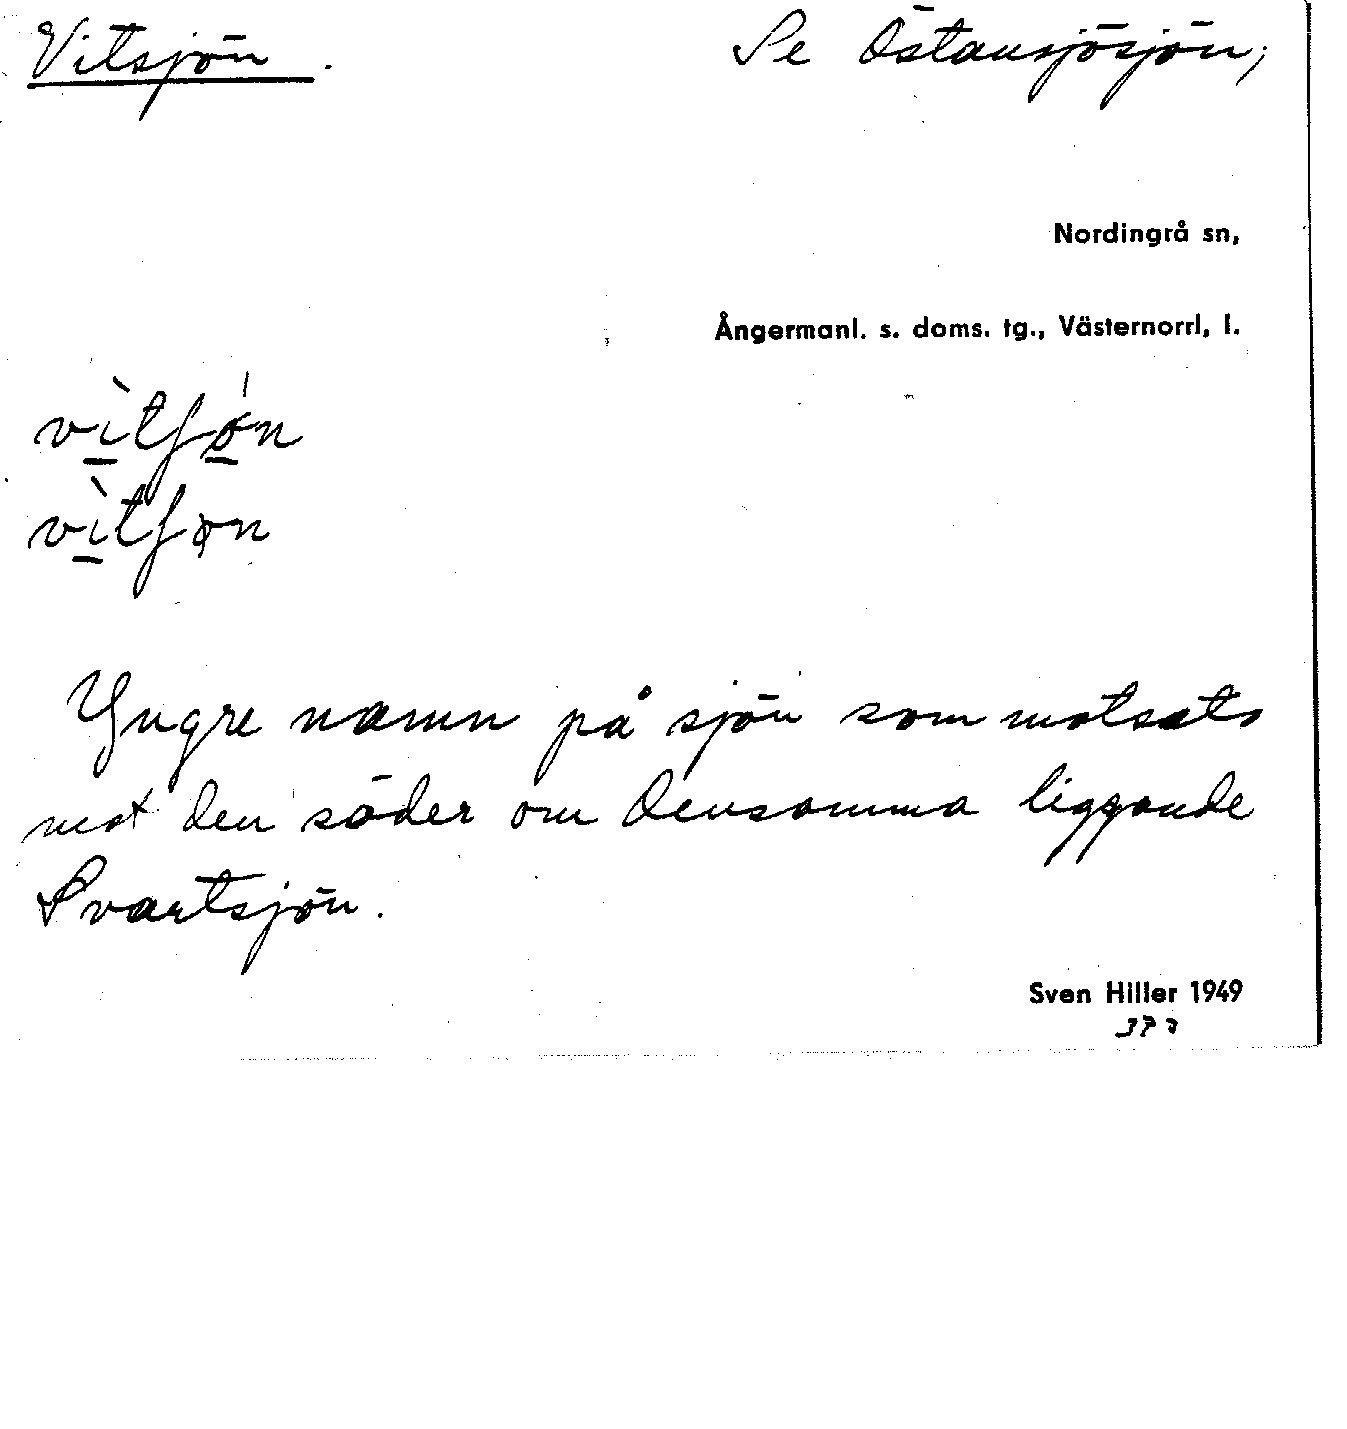 Vitsjön. Se Östansjösjön;
Nordingrå sn,
Ångermanl. s. doms. tg., Västernorrl. l.
vìtʃǿn
vìtʃøn
Yngre namn på sjön som motsats
mot den söder om densamma liggande
Svartsjön.
Sven Hiller 1949